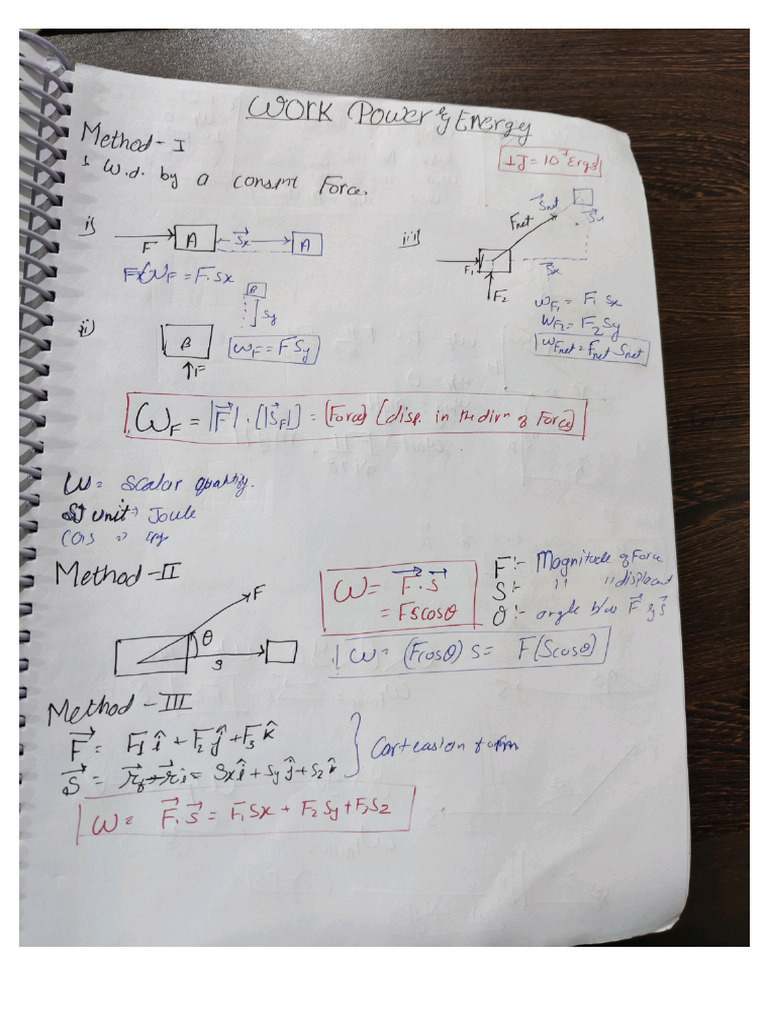 Work Power & Energy
Method - I
1J = 10⁷ Ergs
W.d. by a constnt Force.
i)
F A Sx A
W_F = F. Sx
ii)
B
B Sy
↑F
W_F = F Sy
iii)
F₁ F₂ Fnet Snet Sx
W_F₁ = F₁ Sx
W_F₂ = F₂ Sy
W_Fnet = Fnet Snet
W_F = |F⃗| . [|S⃗_F|] = (Force) (disp. in the dirn of Force)
W = Scalar quantity.
SI unit → Joule
Method - II
W = F⃗.s⃗
= Fscosθ
F :- Magnitude of Force
S :- '' ''displacent
θ :- angle b/w F⃗ & s⃗
F θ s
W = (Fcosθ) s = F(Scosθ)
Method - III
F⃗ = F₁î + F₂ĵ + F₃k̂
S⃗ = r⃗f - r⃗i = Sxî + Syĵ + Szk̂
} Carteasion form
W = F⃗. S⃗ = F₁Sx + F₂Sy + F₃Sz